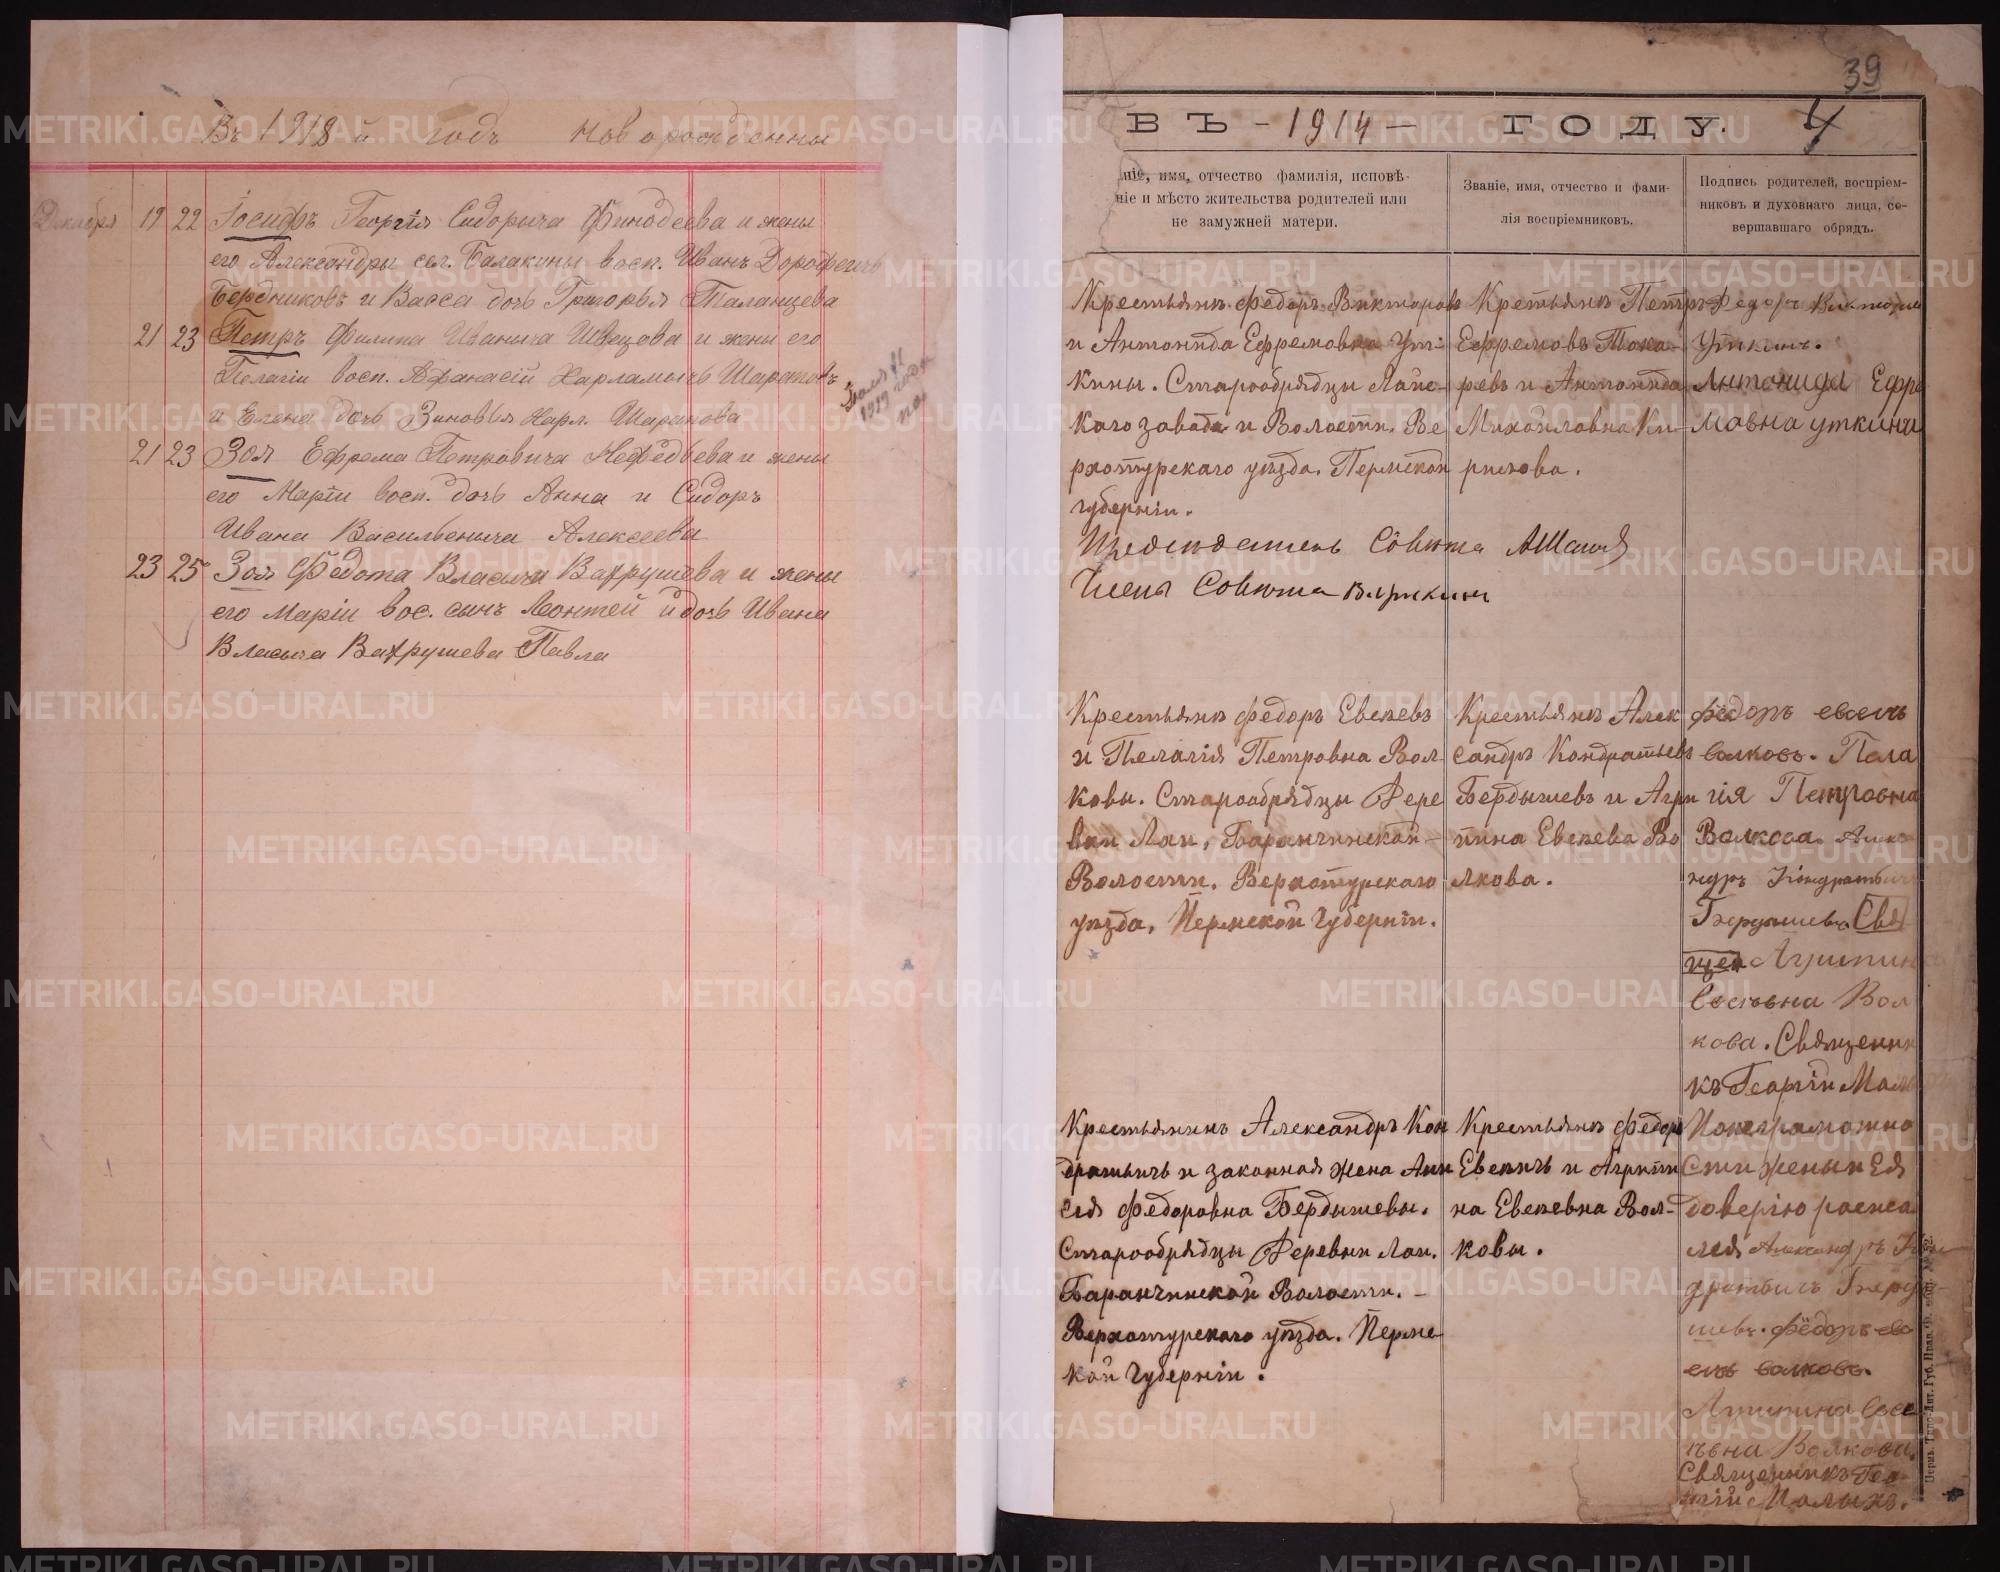 Въ 1918 й годъ новорожденны
Декабря 19 22 Іосифъ Георгія Сидорыча Финодеева и жены
его Александры сел. Балакины восп. Иванъ Дорофеичъ
Бердниковъ и Васса дочь Григорья Таланцева
21 23 Петръ Филипа Иваныча Швецова и жены его
Пелагіи восп. Афанасій Харламычъ Шараповъ
и Елена дочь Зиновья Харл. Шарапова
1919 года
21 23 Зоя Ефрема Петровича Нефедьева и жены
его Маріи восп. дочь Анна и Сидоръ
Ивана Васильевича Алексеева
23 25 Зоя Федота Власыча Вахрушева и жены
его Маріи вос. сынъ Леонтей и дочь Ивана
Власыча Вахрушева Павла
39
ВЪ - 1914 - ГОДУ. 4
ніе, имя, отчество фамилія, исповѣ-
ніе и мѣсто жительства родителей или
не замужней матери.
Званіе, имя, отчество и фами-
лія воспріемниковъ.
Подпись родителей, воспріем-
никовъ и духовнаго лица, со-
вершавшаго обрядъ.
Крестьянъ Федоръ Викторовъ
и Антонида Ефремовна Ут-
кины. Старообрядцы Лайс-
каго завода и Волости. Ве
рхотурскаго уѣзда. Пермской
губерніи.
Предсѣдатель Совѣта
Члены Совѣта
Крестьянъ Петръ
Ефремовъ Тока-
ревъ и Антонида
Михайловна Ки-
рилова.
Федоръ Викторы
Уткинъ.
Антонида Ефре
мовна уткина
Крестьянъ Федоръ Евсеевъ
и Пелагія Петровна Вол
ковы. Старообрядцы Дере
вни Лаи, Баранчинской-
Волости. Верхотурскаго
уѣзда, Пермской Губерніи.
Крестьянъ Алек
сандръ Кондратьевъ
Бердышевъ и Агри
пина Евсеева Во
лкова.
Фёдоръ евсеичъ
волковъ. Пела
гія Петровна
Волкова Алекса
ндръ Кондратьичъ
Бердышевъ Свя
щен Агрипина
Евсеевна Вол
кова. Священни
къ Георгій Мал
Крестьянинъ Александръ Кон
дратьичъ и законная жена Анн
Федоровна Бердышевы.
Старообрядцы Деревни Лаи.
Баранчинской Волости. -
Верхотурскаго уѣзда. Пермс
кой Губерніи.
Крестьянъ Федоръ
Евсеичъ и Агрипи
на Евсеевна Вол-
ковы.
Понеграмотно
сти жены и Ея
доверію расписа
лся Александръ Кон
дратьичъ Берды
шевъ. Фёдоръ ев
сеичъ волковъ.
Агрипина Евсе
евна Волкова.
Священникъ Гео
ргій Малыхъ.
Пермь. Типо-Лит. Губ. Прав.
METRIKI.GASO-URAL.RU